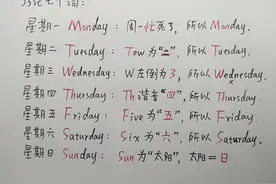 星期一 Monday：周一忙死了，所以Monday.
星期二 Tuesday：Tow为"二"，所以Tuesday.
星期三 Wednesday：W左倒为3，所以Wednesday.
星期四 Thursday：Th谐音"四"，所以Thursday.
星期五 Friday：Five为"五"，所以Friday.
星期六 Saturday：Six为"六"，所以Saturday.
星期日 Sunday：Sun为"太阳"，太阳=日